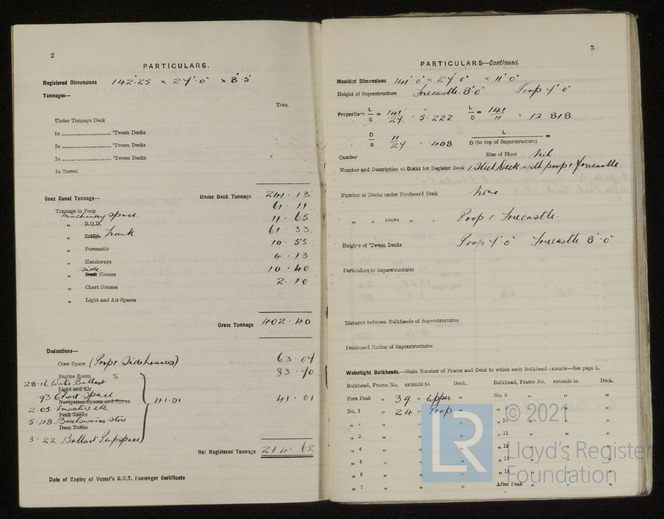 2
PARTICULARS.
Registered Dimensions 142.25 × 27'.0" × 8'.5
Tonnages—
Tons.
Under Tonnage Deck
In 'Tween Decks
In 'Tween Decks
In 'Tween Decks
In Turret
Suez Canal Tonnage— Under Deck Tonnage
Tonnage in Poop
Machinery Space 11.65
" Bridge Trunk 61.33
" Forecastle 10.55
" Hatchways 4.13
" Side Houses 10.40
" Chart Houses 2.10
" Light and Air Spaces
Gross Tonnage 402.40
Deductions—
Crew Space (Poop & Sidehouses) 63.07
Engine Room %
Water Ballast
Light and Air
.93 Chart Space
Navigation Spaces and Stores
41.01
41.01
Peak Tanks
5.48 Boatswains store
Deep Tanks
3.22 Ballast Pumpspace
Net Registered Tonnage 214.62
Date of Expiry of Vessel's B.O.T. Passenger Certificate
3
PARTICULARS—Continued.
Moulded Dimensions 141'.0" × 27'.0" × 11'.0"
Height of Superstructure Forecastle 8'.0" Poop 7'.0"
Proportions L/B = 141/27 = 5.222 L/D = 141/11 = 12.818
D/B 11/27 = .408 L/D (to top of Superstructure) =
Camber Rise of Floor Nil
Number and Description of Decks for Register Book 1 Steel Deck with poop & Forecastle
Number of Decks under Freeboard Deck None
" " above " Poop & Forecastle
Heights of 'Tween Decks Poop 7'.0" Forecastle 8'.0"
Particulars of Superstructures
Distance between Bulkheads of Superstructures
Freeboard Ratios of Superstructures
Watertight Bulkheads.—State Number of Frame and Deck to which each Bulkhead extends—See page 2.
Bulkhead, Frame No. extends to Deck. Bulkhead, Frame No. extends to Deck.
Fore Peak " 39 " upper " No. 9
No. 1 " 24 " Poop " " 10
" 2 " 11
" 3 " 12
" 4 " 13
" 5 " 14
" 6
" 7 After Peak
© 2021
LR
Lloyd's Register
Foundation